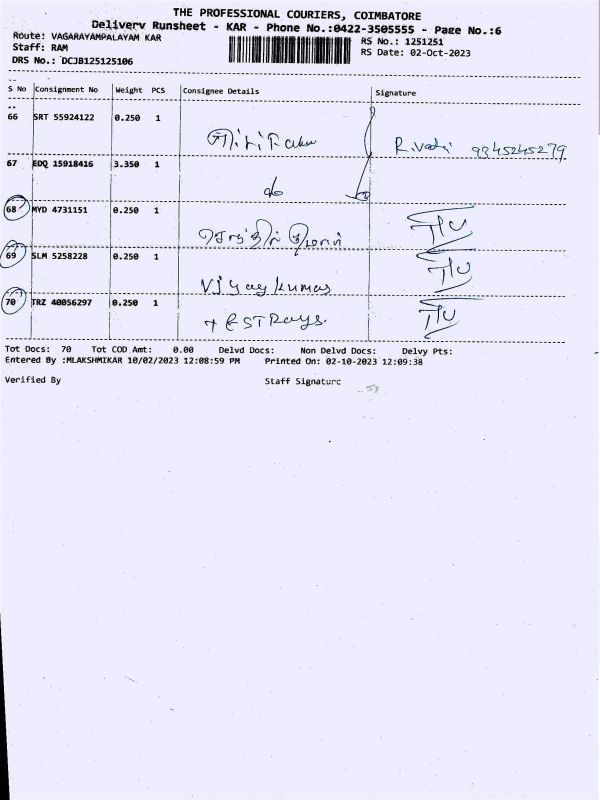 THE PROFESSIONAL COURIERS, COIMBATORE
Delivery Runsheet - KAR - Phone No.:0422-3505555 - Page No.:6
Route: VAGARAYAMPALAYAM KAR
RS No.: 1251251
Staff: RAM
RS Date: 02-Oct-2023
DRS No.: DCJB125125106
S No Consignment No Weight PCS Consignee Details Signature
66 SRT 55924122 0.250 1
9345245279
67 EDQ 15918416 3.350 1
68 MYD 4731151 0.250 1
செந்தில் குமார்
69 SLM 5258228 0.250 1
Vijaykumar
70 TRZ 40056297 0.250 1
Tot Docs: 70 Tot COD Amt: 0.00 Delvd Docs: Non Delvd Docs: Delvy Pts:
Entered By :MLAKSHMIKAR 10/02/2023 12:08:59 PM Printed On: 02-10-2023 12:09:38
Verified By Staff Signature